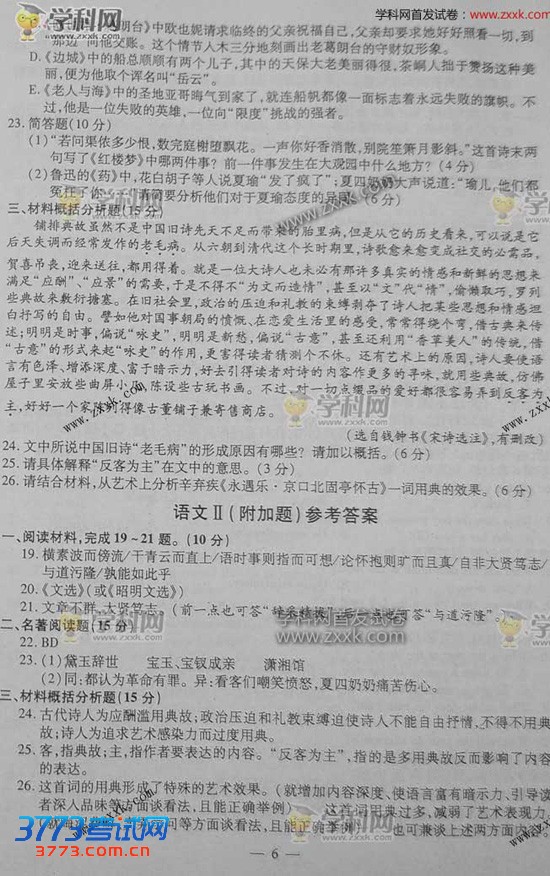 学科网首发试卷
网址：www.zxxk.com
中欧也妮请求临终的父亲祝福自己，父亲却要求她好好照看一切，到
那边"向他交账。这个情节入木三分地刻画出老葛朗台的守财奴形象。
D.《边城》中的船总顺顺有两个儿子，其中的天保大老美丽得很，茶峒人拙于赞扬这种美
丽，便为他取个诨名叫"岳云"。
E.《老人与海》中的圣地亚哥晦气到家了，就连船帆都像一面标志着永远失败的旗帜。不
过，他是一位失败的英雄，一位向"限度"挑战的强者。
23.简答题(10 分)
(1)"若问渠侬多少恨，数完庭榭堕飘花。一声你好香消散，别院笙箫月影斜。"这首诗末两
句写了《红楼梦》中哪两件事？前一件事发生在大观园中什么地方？(4 分)
(2)鲁迅的《药》中，花白胡子等人说夏瑜"发了疯了"；夏四奶奶大声说道："瑜儿，他们都
冤枉了你……"请简要分析他们对于夏瑜态度的异同。(6 分)
三、材料概括分析题(15 分)
铺排典故虽然不是中国旧诗先天不足而带来的胎里病，但是从它的历史看来，可以说是它
后天失调而经常发作的老毛病。从六朝到清代这个长时期里，诗歌愈来愈变成社交的必需品，
贺喜吊丧，迎来送往，都用得着。就是一位大诗人也未必有那许多真实的情感和新鲜的思想来
满足"应酬"、"应景"的需要，于是不得不"为文而造情"，甚至以"文"代"情"，偷懒取巧，罗列
些典故来敷衍搪塞。在旧社会里，政治的压迫和礼教的束缚剥夺了诗人把某些思想和情感坦
白抒写的自由。譬如他对国事朝局的愤慨、在恋爱生活里的感受，常常得绕个弯，借古典来传
述；明明是时事，偏说"咏史"，明明是新愁，偏说"古意"，甚至还利用"香草美人"的传统，借
"古意"的形式来起"咏史"的作用，更害得读者猜测个不休。还有艺术上的原因，诗人要使语
言有色泽、增添深度、富于暗示力，好去引得读者对诗的内容作更多的寻味，就用些典故，仿佛
屋子里安放些曲屏小几，陈设些古玩书画。不过，对一切点缀品的爱好都很容易弄到反客为
主，好好一个家弄得像古董铺子兼寄售商店。
(选自钱钟书《宋诗选注》，有删改)
24.文中所说中国旧诗"老毛病"的形成原因有哪些？请加以概括。(6 分)
25.请具体解释"反客为主"在文中的意思。(3 分)
26.请结合材料，从艺术上分析辛弃疾《永遇乐·京口北固亭怀古》一词用典的效果。(6 分)
语文Ⅱ(附加题)参考答案
一、阅读材料，完成 19~21 题。(10 分)
19.横素波而傍流/干青云而直上/语时事则指而可想/论怀抱则旷而且真/自非大贤笃志/
与道污隆/孰能如此乎
20.《文选》(或《昭明文选》)
21.文章不群，大贤笃志。(前一点也可答"辞采精拔"，后一点也可答"与道污隆"。)
二、名著阅读题(15 分)
22.BD
23.(1)黛玉辞世　宝玉、宝钗成亲　潇湘馆
(2)同：都认为革命有罪。异：看客们嘲笑愤怒，夏四奶奶痛苦伤心。
三、材料概括分析题(15 分)
24.古代诗人为应酬滥用典故；政治压迫和礼教束缚迫使诗人不能自由抒情，不得不用典
故；诗人为追求艺术感染力而过度用典。
25.客，指典故；主，指作者要表达的内容。"反客为主"，指的是多用典故反而影响了内容
的表达。
26.这首词的用典形成了特殊的艺术效果。(就增加内容深度、使语言富有暗示力、引导读
者深人品味等方面谈看法，且能正确举例)　这首词用典过多，减弱了艺术表现力。
等方面谈看法，且能正确举例)　也可兼谈上述两方面内容。
3773考试网
3773.com.cn
— 6 —
学科网
www.zxxk.com